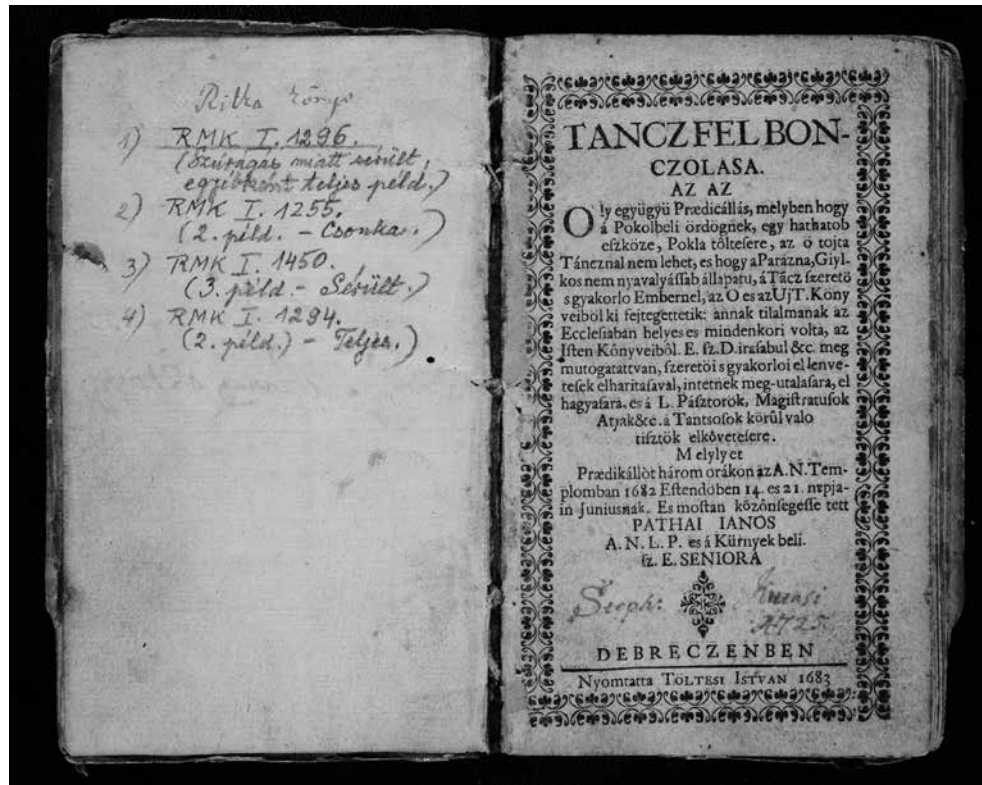 Ritka könyv
1) RMK I. 1296.
(Szúrágás miatt sérült,
egyébként teljes péld.)
2) RMK I. 1255.
(2. péld. - Csonka.)
3) RMK I. 1450.
(3. péld. - Sérült.)
4) RMK I. 1294.
(2. péld.) - Teljes.)
TANCZ FEL BON-
CZOLASA.
AZ AZ
Oly együgyü Prædicállás, melyben hogy
á Pokolbeli ördögnek, egy hathatob
eſzköze, Pokla töltesere, az ö tojta
Táncznal nem lehet, es hogy a Parázna, Giyl-
kos nem nyavalyáſſab állapatu, á Tácz ſzeretö
s gyakorlo Embernel, az O es az Uj T. Köny
veiböl ki fejtegettetik: annak tilalmanak az
Eccleſiaban helyes es mindenkori volta, az
Iſten Könyveiböl. E. ſz. D. iraſabul &c. meg
mutogatattvan, ſzeretöi s gyakorloi ellenve-
teſek elharitaſaval, intetnek meg-utalaſara, el
hagyaſara, es á L. Páſztorok, Magiſtratuſok
Atjak &c. á Tantsoſok körûl valo
tiſztök elkövetesere.
Melylyet
Prædikállòt három orákon az A. N. Tem-
plomban 1682 Eſtendöben 14. es 21. nepja-
in Juniusnak. Es moſtan közönſegeſſe tett
PATHAI IANOS
A. N. L. P. es á Kürnyek beli.
ſz. E. SENIORA
Steph:
1725
DEBRECZENBEN
Nyomtatta TÖLTESI ISTVAN 1683